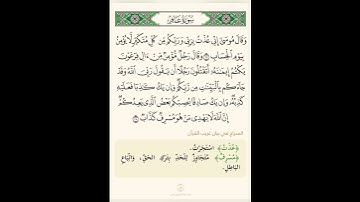 سورة غافر
وَقَالَ مُوسَىٰٓ إِنِّي عُذْتُ بِرَبِّي وَرَبِّكُم مِّن كُلِّ مُتَكَبِّرٍ لَّا يُؤْمِنُ
بِيَوْمِ ٱلْحِسَابِ ۝ وَقَالَ رَجُلٌ مُّؤْمِنٌ مِّنْ ءَالِ فِرْعَوْنَ
يَكْتُمُ إِيمَٰنَهُۥٓ أَتَقْتُلُونَ رَجُلًا أَن يَقُولَ رَبِّيَ ٱللَّهُ وَقَدْ
جَآءَكُم بِٱلْبَيِّنَٰتِ مِن رَّبِّكُمْ وَإِن يَكُ كَٰذِبًا فَعَلَيْهِ
كَذِبُهُۥ وَإِن يَكُ صَادِقًا يُصِبْكُم بَعْضُ ٱلَّذِي يَعِدُكُمْ
إِنَّ ٱللَّهَ لَا يَهْدِي مَنْ هُوَ مُسْرِفٌ كَذَّابٌ ۝
السراج في بيان غريب القرآن
﴿عُذْتُ﴾ اسْتَجَرْتُ.
﴿مُسْرِفٌ﴾ مُتَجَاوِزٌ لِلْحَدِّ بِتَرْكِ الحَقِّ، وَاتِّبَاعِ
البَاطِلِ.